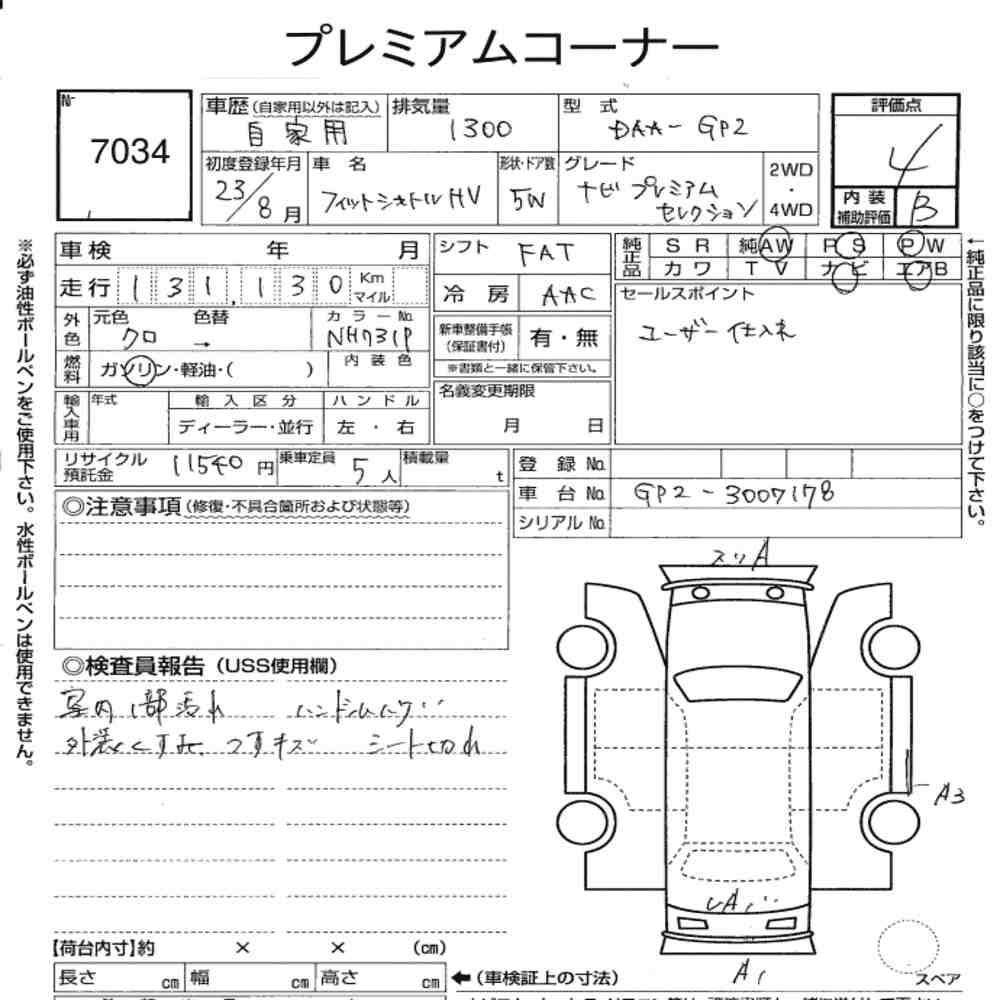 プレミアムコーナー
№
7034
車歴(自家用以外は記入)
自家用
排気量
1300
型 式
DAA-GP2
評価点
4
初度登録年月
23/8月
車 名
フィットシャトルHV
形状・ドア数
5W
グレード
ナビプレミアム
セレクション
2WD
・
4WD
内 装
補助評価
B
※必ず油性ボールペンをご使用下さい。水性ボールペンは使用できません。
車検 年 月
シフト FAT
純正品
SR 純AW PS PW
カワ TV ナビ エアB
←純正品に限り該当に○をつけて下さい。
走行 131,130 Km
マイル
冷 房 AAC
セールスポイント
ユーザー仕入れ
外色
元色 色替
クロ →
カラーNo.
NH731P
新車整備手帳
(保証書付)
有・無
※書類と一緒に保管下さい。
燃料
ガソリン・軽油・( )
内 装 色
名義変更期限
月 日
輸入車用
年式
輸 入 区 分
ディーラー・並行
ハ ン ド ル
左 ・ 右
リサイクル
預託金
11540円
乗車定員
5人
積載量
t
登 録 No.
車 台 No. GP2-3007178
シリアル No.
◎注意事項(修復・不具合箇所および状態等)
スリA
◎検査員報告(USS使用欄)
室内1部汚れ ハンドルハゲ
外装くすみ、うすキズ シート切れ
A3
A1
【荷台内寸】約 × × (cm)
長さ cm 幅 cm 高さ cm ←(車検証上の寸法)
スペア